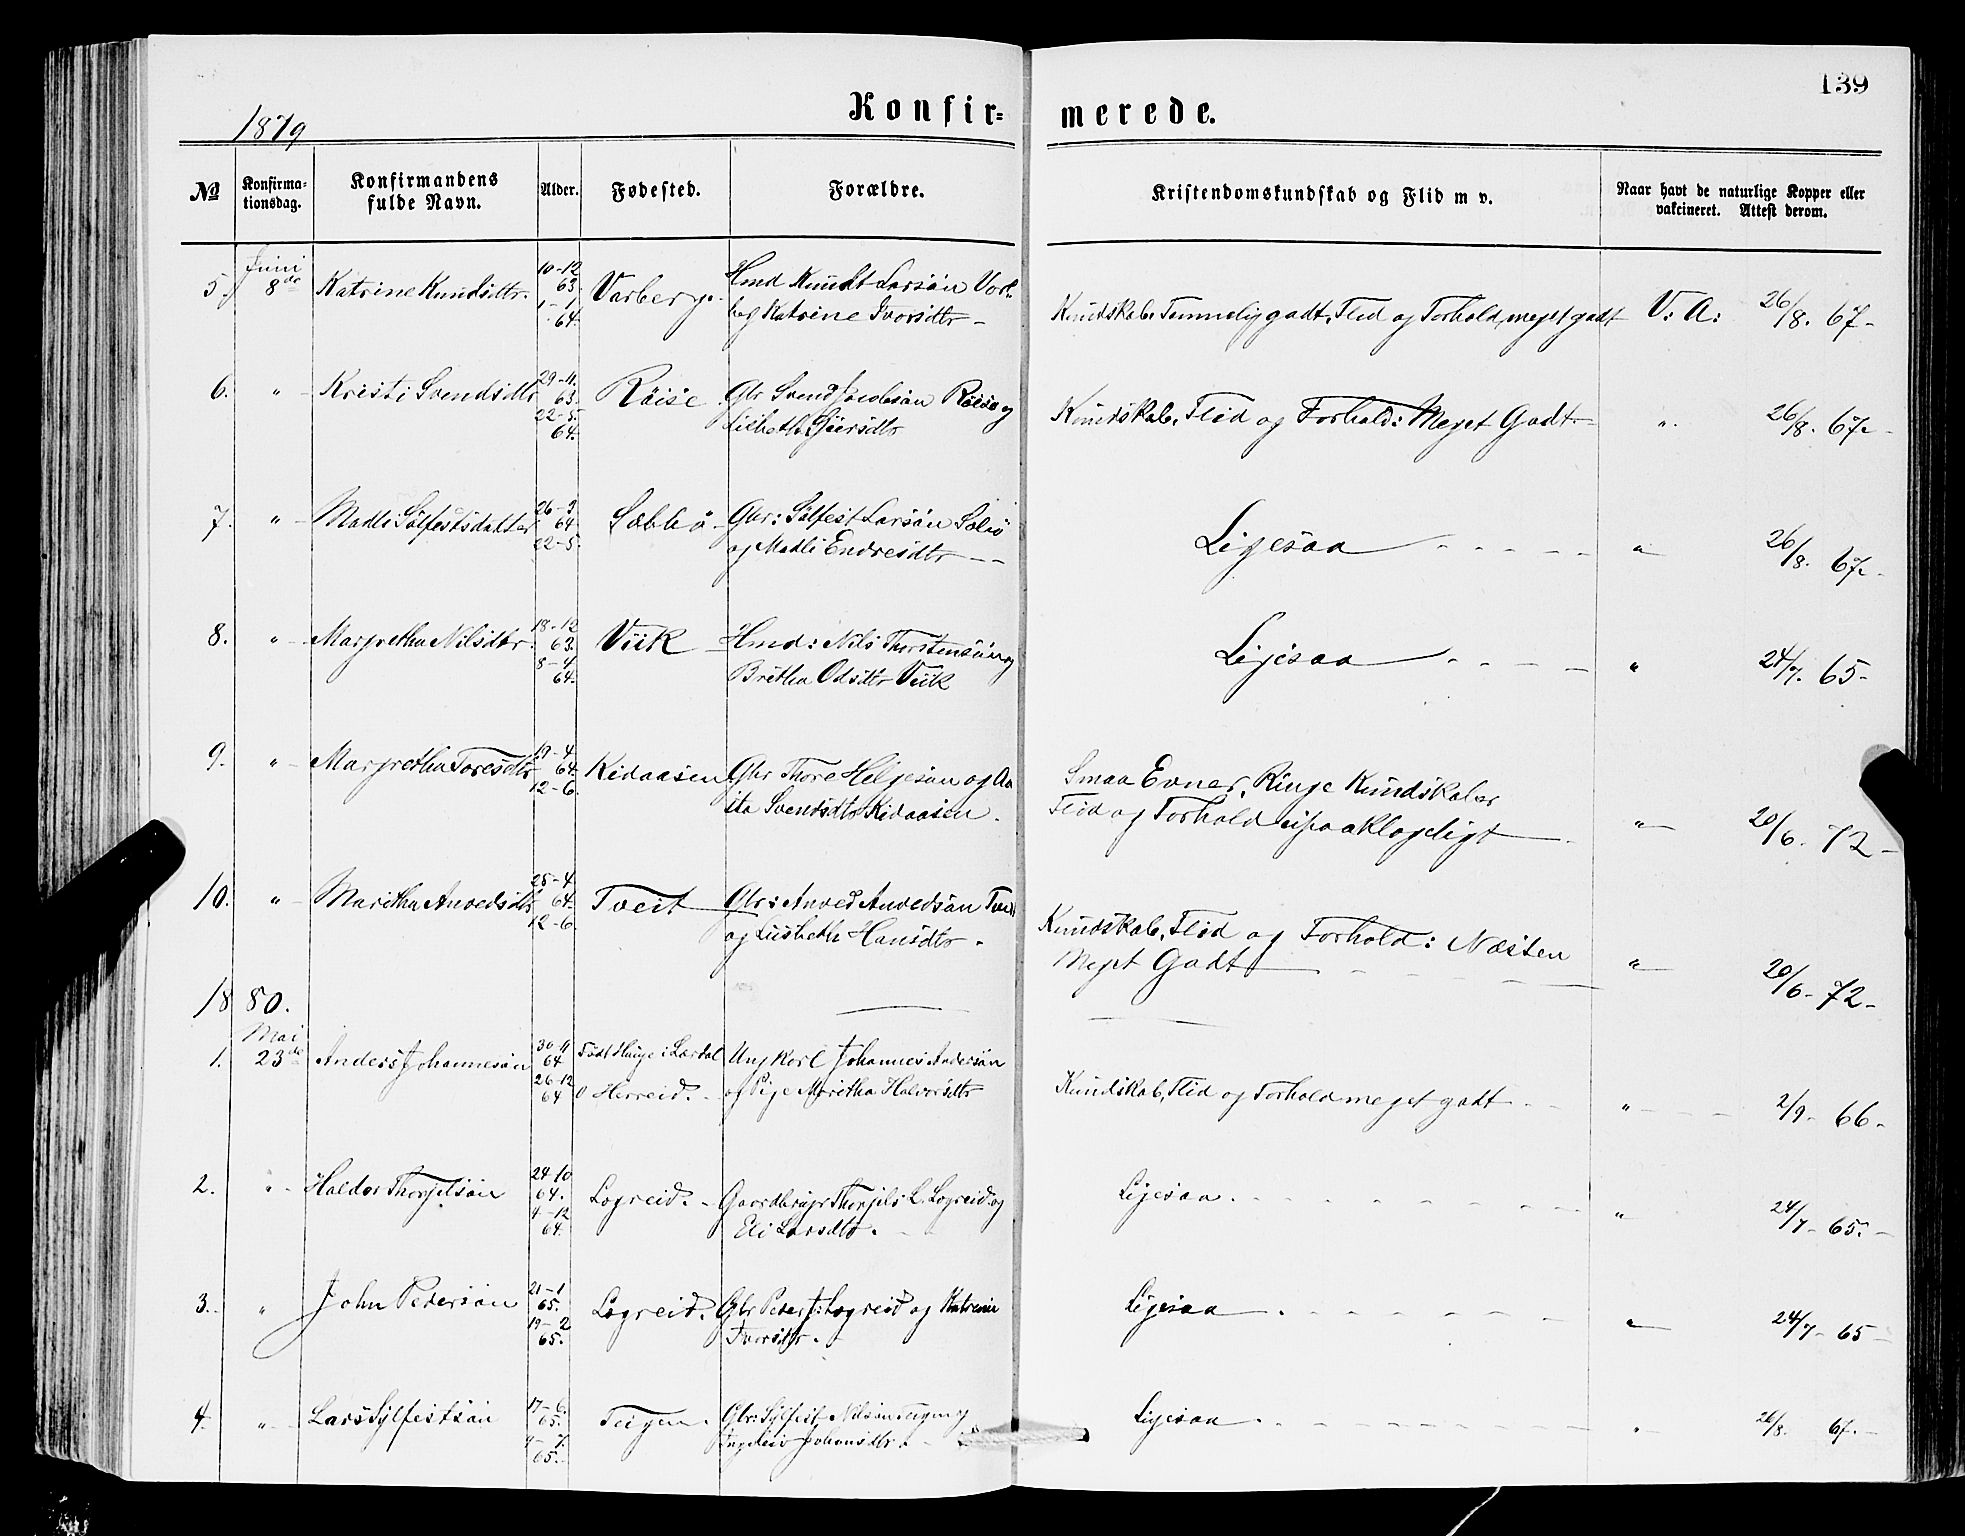 139
Konfir= merede.
1879
No Konfirma= tionsdag. Konfirmandens fulde Navn. Alder. Fødested. Forældre. Kristendomskundskab og Flid m v. Naar havt de naturlige Kopper eller vakcineret. Attest derom.
5. Juni 8de Katrine Knudsdtr. 10-12 63. 1-1 64. Varberg. Hmd Knudt Larsön Varb.
og Katrine Ivorsdtr - Kundskab. Temmelig godt, Flid og Forhold, meget godt V: A: 26/8. 67-
6. " Kristi Svendsdtr 29-11. 63. 22-5. 64. Röise. Gbr Svend Jacobsön Röise og
Lisbeth Sjursdtr Kundskab, Flid og Forhold: Meget Godt - " 26/8. 67.-
7. " Madli Sölfestsdatter 26-3 64. 22-5. Sæbbö. Gbr: Sölfest Larsön Sæbö
og Madli Endresdtr - - Ligesaa - - - - " 26/8. 67.-
8. " Margretha Nilsdtr. 18-12 63. 8-4 64. Viik Hmd: Nils Thorstensön og
Britha Odsdtr Viik Ligesaa - - - - " 24/7. 65-
9. " Margretha Toresdtr 19-4 64. 12-6. Kidaasen Gbr Thore Helgesön og Aa
sta Svendsdtr Kidaasen. Smaa Evner, Ringe Kundskaber
Flid og Forhold upaaklageligt - " 20/6. 72-
10. " Maritha Anvedsdtr 25-4 64. 12-6. Tveit Gbr: Anved Anvedsön Tveit
og Lisbeth Hansdtr. Kundskab, Flid og Forhold: Næsten
Meget Godt - - - - " 20/6- 72-
1880.
1. Mai 23de Anders Johannesön 30-11 64 26-12 64 Född Hauge i Lærdal Ungkarl Johannes Andersön
O Herreid. - og Pige Maritha Halvorsdtr Kundskab, Flid og Forhold meget godt - - " - - 2/9- 66-
2. " Haldor Thorgilsön 24-10 64. 4-12 64. Legreid. - Gaardbruger Thorgils L. Legreid og
Eli Larsdtr. - Ligesaa. - - - - " 24/7- 65.-
3. " John Pedersön 21-1 65. 19-2 65. Legreid. Gbr Peder J: Legreid og Katrine
Ivorsdtr. - Ligesaa. - - - - " 24/7- 65-
4. " Lars Sylfestsön 17-6. 65. 9-7. 65. Teigen. Gbr: Sylfest Nilsön Teigen og
Ingeleiv Johansdtr. - Ligesaa. - - - - " 26/8. 67.-